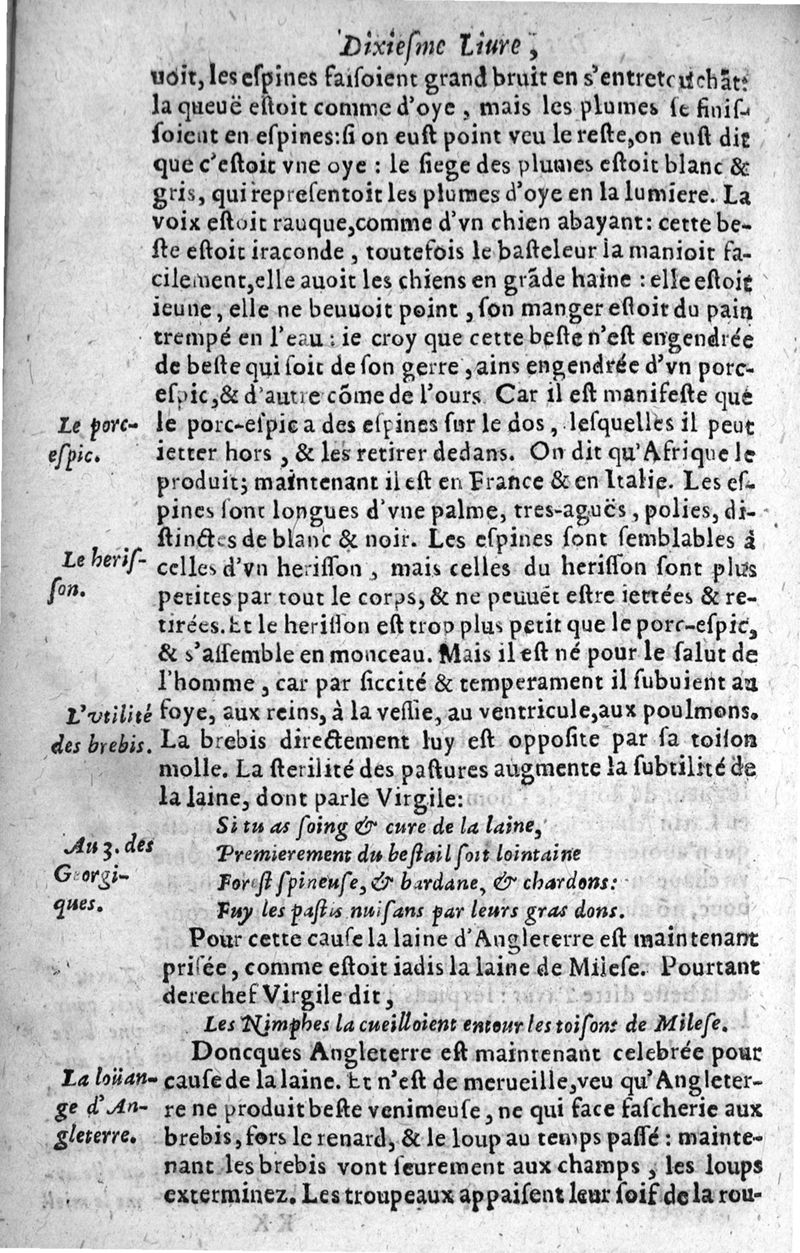 Dixieſme Liure,
uoit, les eſpines faiſoient grand bruit en s'entretouchãt:
la queuë eſtoit comme d'oye, mais les plumes ſe finiſ-
ſoient en eſpines: ſi on euſt point veu le reſte, on euſt dit
que c'eſtoit vne oye : le ſiege des plumes eſtoit blanc &
gris, qui repreſentoit les plumes d'oye en la lumiere. La
voix eſtoit rauque, comme d'vn chien abayant: cette be-
ſte eſtoit iraconde, toutefois le baſteleur la manioit fa-
cilement, elle auoit les chiens en grãde haine : elle eſtoit
ieune, elle ne beuuoit point, ſon manger eſtoit du pain
trempé en l'eau : ie croy que cette beſte n'eſt engendrée
de beſte qui ſoit de ſon gerre, ains engendrée d'vn porc-
eſpic, & d'autre cõme de l'ours. Car il eſt manifeſte que
Le porc-
eſpic.
le porc-eſpic a des eſpines ſur le dos, leſquelles il peut
ietter hors, & les retirer dedans. On dit qu'Afrique le
produit; maintenant il eſt en France & en Italie. Les eſ-
pines ſont longues d'vne palme, tres-aguës, polies, di-
ſtinctes de blanc & noir. Les eſpines ſont ſemblables à
Le heriſ-
ſon.
celles d'vn heriſſon, mais celles du heriſſon ſont plus
petites par tout le corps, & ne peuuẽt eſtre iettées & re-
tirées. Et le heriſſon eſt trop plus petit que le porc-eſpic,
& s'aſſemble en monceau. Mais il eſt né pour le ſalut de
l'homme, car par ſiccité & temperament il ſubuient au
L'vtilité
des brebis.
foye, aux reins, à la veſſie, au ventricule, aux poulmons.
La brebis directement luy eſt oppoſite par ſa toiſon
molle. La ſterilité des paſtures augmente la ſubtilité de
la laine, dont parle Virgile:
Au 3. des
Georgi-
ques.
Si tu as ſoing & cure de la laine,
Premierement du beſtail ſoit lointaine
Foreſt ſpineuſe, & bardane, & chardons:
Fuy les paſtis nuiſans par leurs gras dons.
Pour cette cauſe la laine d'Angleterre eſt maintenant
priſée, comme eſtoit iadis la laine de Mileſe. Pourtant
derechef Virgile dit,
Les Nimphes la cueilloient entour les toiſons de Mileſe.
Doncques Angleterre eſt maintenant celebrée pour
La loüan-
ge d'An-
gleterre.
cauſe de la laine. Et n'eſt de merueille, veu qu'Angleter-
re ne produit beſte venimeuſe, ne qui face faſcherie aux
brebis, fors le renard, & le loup au temps paſſé : mainte-
nant les brebis vont ſeurement aux champs, les loups
exterminez. Les troupeaux appaiſent leur ſoif de la rou-